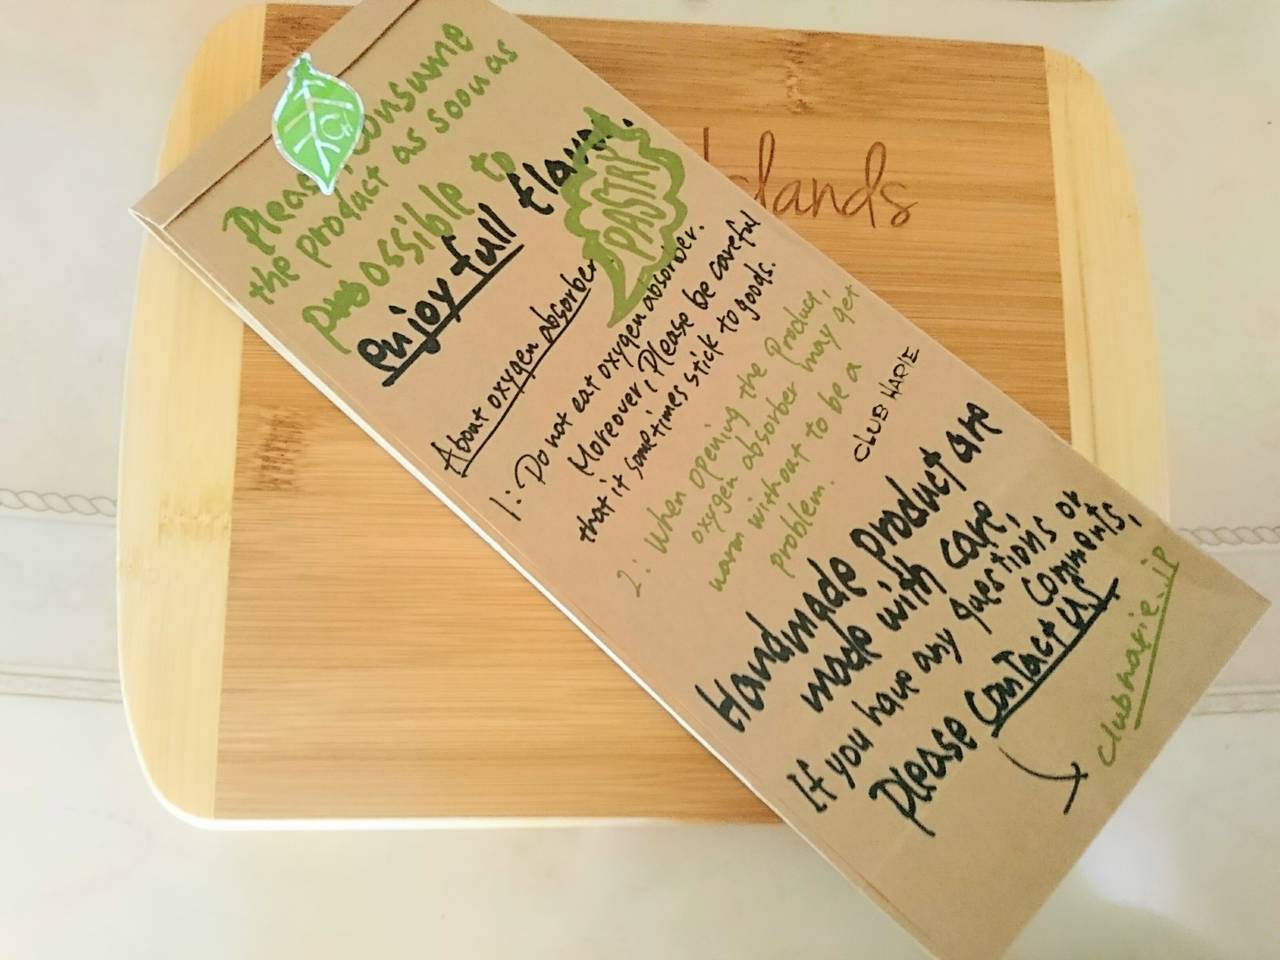 Please consume
the product as soon as
possible to
enjoy full flavor.
PASTRY
About oxygen absorber
1: Do not eat oxygen absorber.
Moreover, Please be careful
that it sometimes stick to goods.
2: When opening the Product,
oxygen absorber may get
warm without to be a
problem.
CLUB HARIE
Handmade product are
made with care,
If you have any questions or
comments,
please contact us
clubharie.jp
Islands